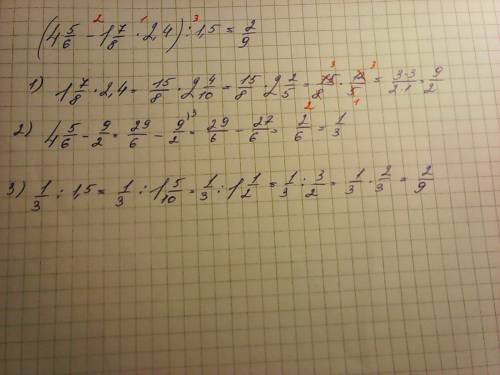 2 1 3
(4 5/6 - 1 7/8 · 2,4) : 1,5 = 2/9
1) 1 7/8 · 2,4 = 15/8 · 2 4/10 = 15/8 · 2 2/5 = 15/8 · 12/5 = 3·3/2·1 = 9/2
2) 4 5/6 - 9/2 = 29/6 - 9/2 = 29/6 - 27/6 = 2/6 = 1/3
3) 1/3 : 1,5 = 1/3 : 1 5/10 = 1/3 : 1 1/2 = 1/3 : 3/2 = 1/3 · 2/3 = 2/9